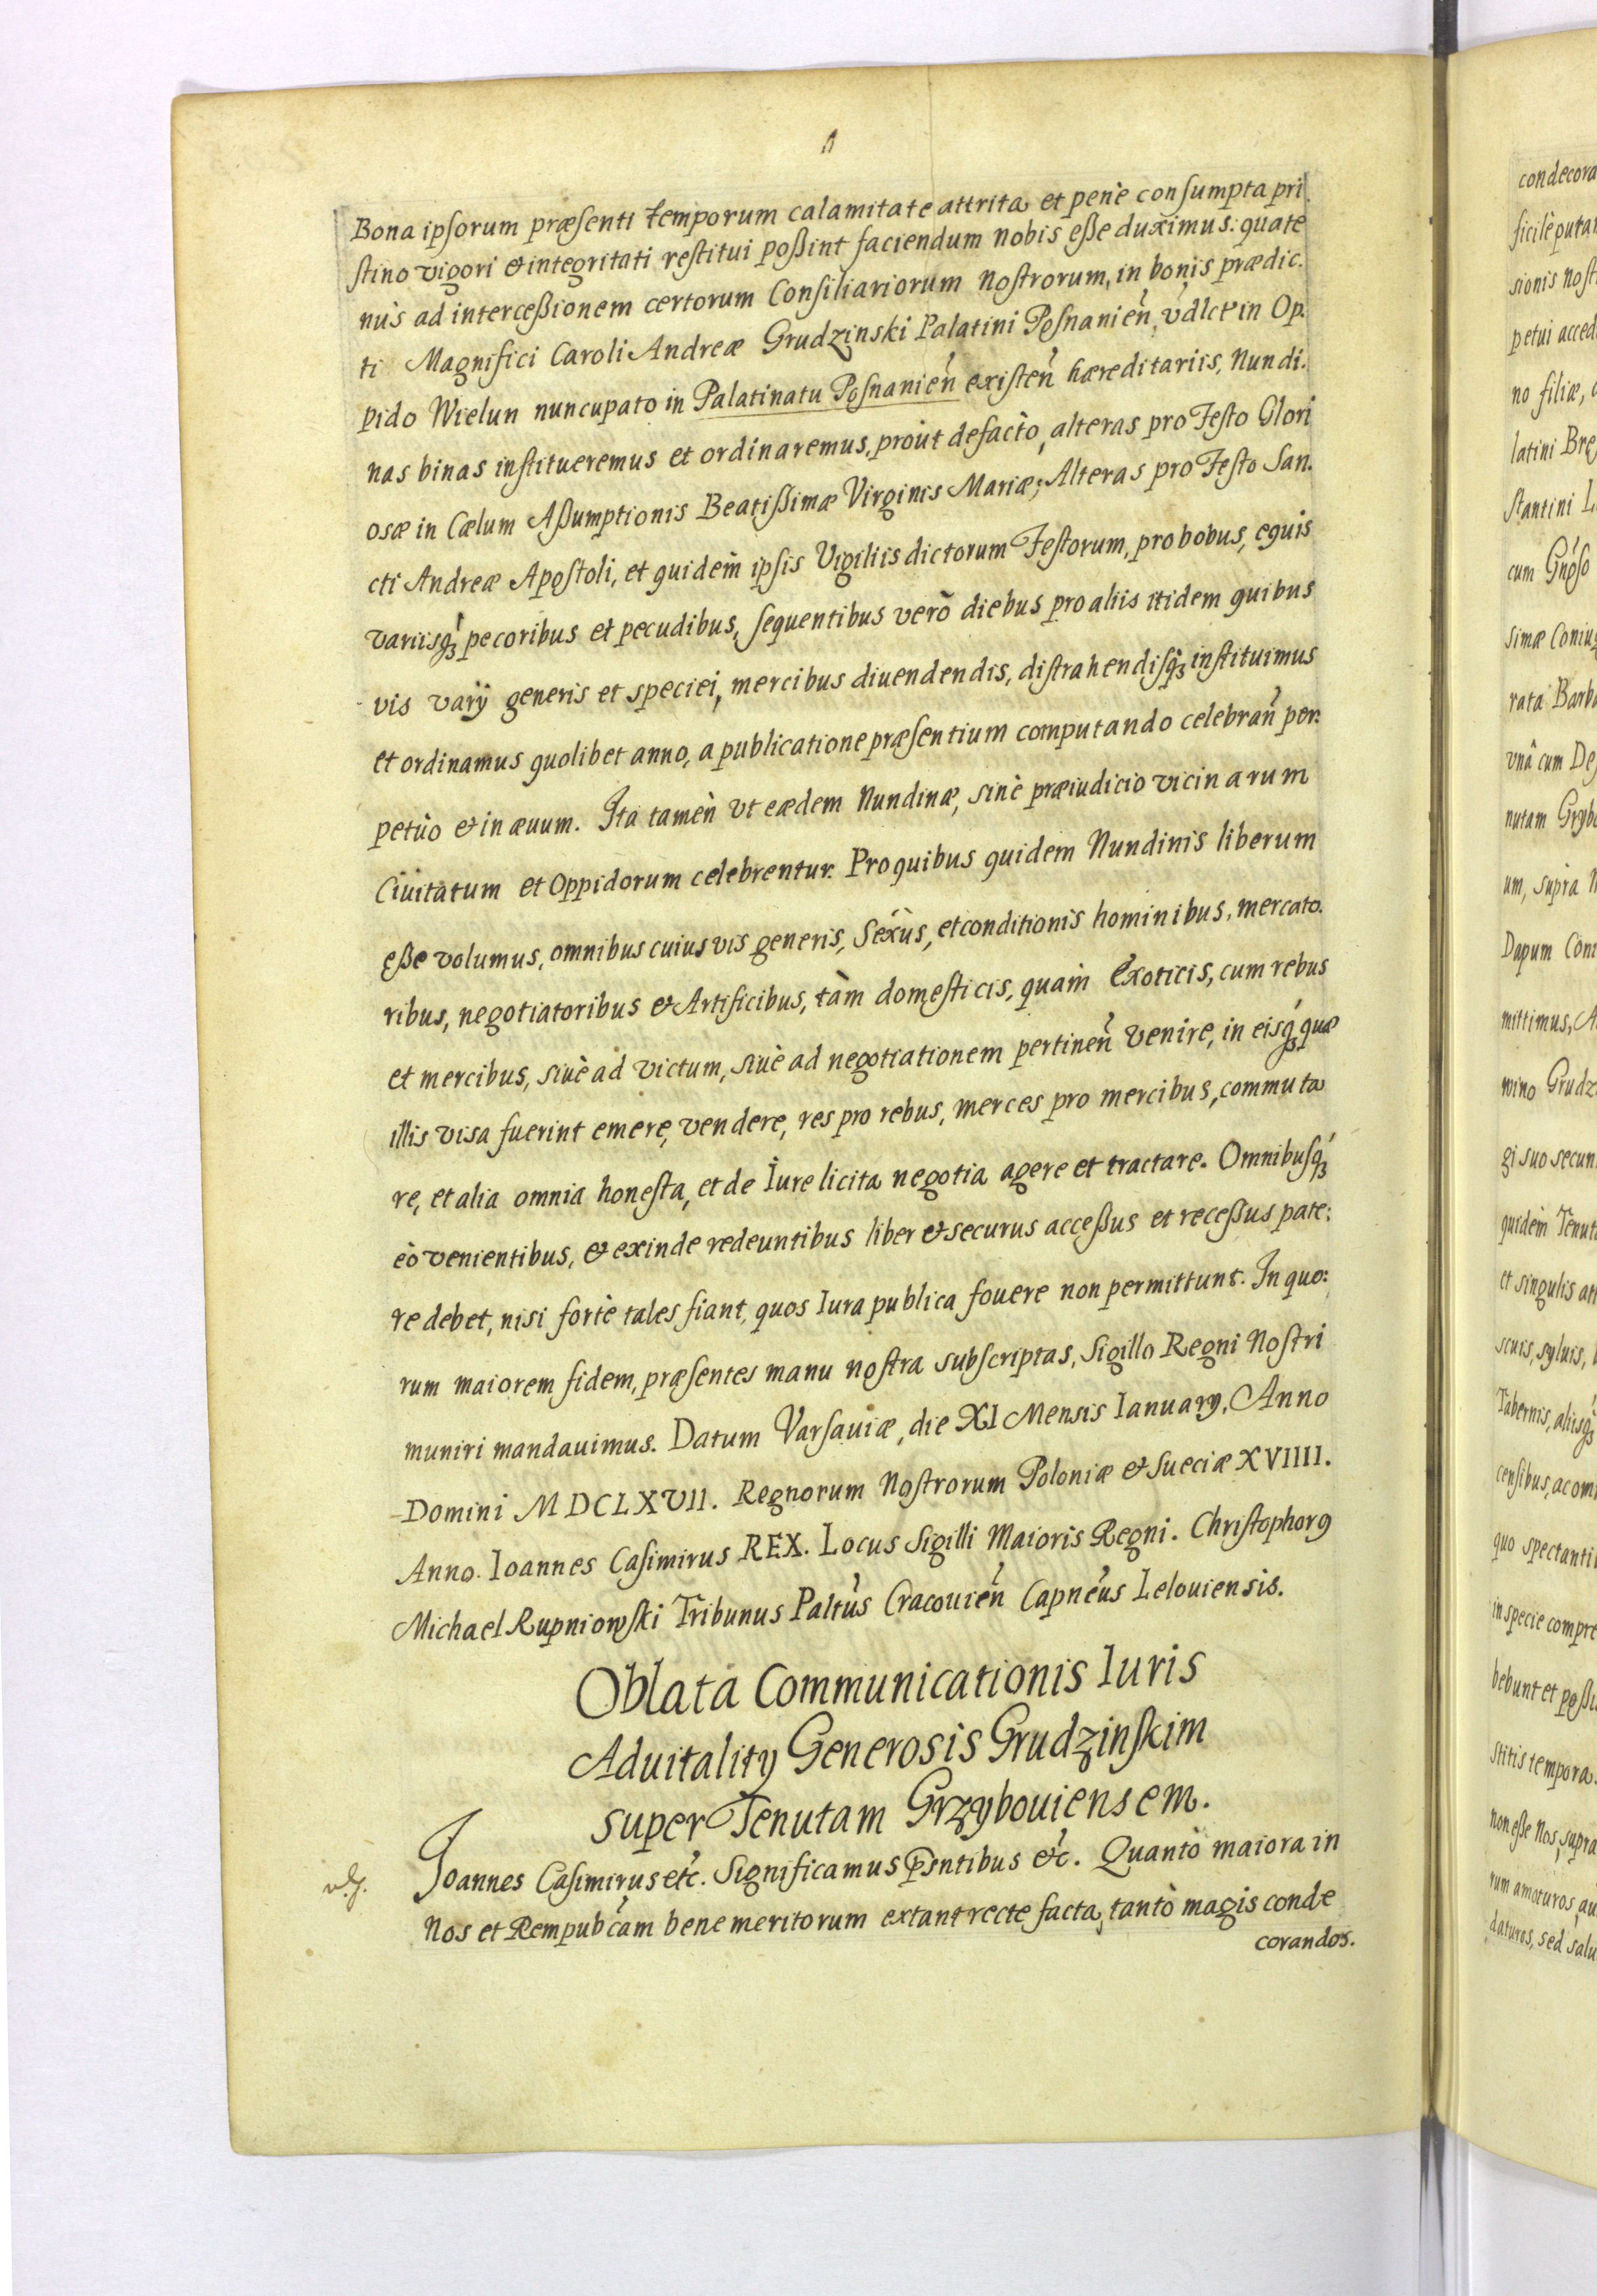 Bona ipſorum præſenti temporum calamitate attrita et penè conſumpta pri.
ſtino vigori & integritati reſtitui poßint faciendum nobis eße duximus: quate
nùs ad interceßionem certorum Conſiliariorum Noſtrorum, in bonis prædic.
ti Magnifici Caroli Andreæ Grudzinski Palatini Poſnanień, vdlct in Op.
pido Wielun nuncupato in Palatinatu Poſnanień exiſteń hæreditariis, Nundi.
nas binas inſtitueremus et ordinaremus, proùt defactò, alteras pro Feſto Glori
osæ in Cælum Aßumptionis Beatißimæ Virginis Mariæ; Alteras pro Feſto San.
cti Andreæ Apoſtoli, et quidem ipſis Vigiliis dictorum Feſtorum, pro bobus, equis
variisq₃ pecoribus et pecudibus, ſequentibus verò diebus pro aliis itidem quibus
vis varÿ generis et speciei, mercibus diuendendis, diſtrahendiſq₃ inſtituimus
et ordinamus quolibet anno, a publicatione præſentium computando celebrań per:
petùo & in æuum. Ita tamèn vt eædem Nundinæ, sinè præiudicio vicinarum
Ciuitatum et Oppidorum celebrentur. Pro quibus quidem Nundinis liberum
eße volumus, omnibus cuiusvis generis, Sexùs, et conditionis hominibus, mercato.
ribus, negotiatoribus & Artificibus, tàm domeſticis, quàm Exoticis, cum rebus
et mercibus, siuè ad victum, siuè ad negotiationem pertineń venire, in eisq₃ quæ
illis visa fuerint emere, vendere, res pro rebus, merces pro mercibus, commuta
re, et alia omnia honeſta, et de Iure licita negotia agere et tractare. Omnibuſq₃
eò venientibus, & exinde redeuntibus liber & securus acceßus et receßus pate:
re debet, nisi fortè tales fiant, quos Iura publica fouere non permittunt. In quo:
rum maiorem fidem, præſentes manu noſtra subscriptas, Sigillo Regni Noſtri
muniri mandauimus. Datum Varſauiæ, die XI Mensis Ianuarÿ, Anno
Domini MDCLXVII. Regnorum Noſtrorum Poloniæ & Sueciæ XVIIII.
Anno. Ioannes Caſimirus REX. Locus Sigilli Maioris Regni. Chriſtophorꝰ
Michael Rupniowſki Tribunus Paltùs Cracouień Capneus Lelouiensis.
Oblata Communicationis Iuris
Aduitalitÿ Generosis Grudzinſkim
super Tenutam Grzybouiensem.
Ioannes Caſimirus etc. Significamus Pṡntibus &c. Quantò maiora in
Nos et Rempubcam bene meritorum extant recte facta, tantò magis conde
corandos.
condecora
sionis noſt
petui acced
no filiæ,
latini Brę
ſtantini
simæ Coniug
rata Barb
vnâ cum De
nutam Grybo
um, supra
Dapum
mittimus,
Grudz
gi suo secun
quidèm Tenut
et singulis at
sylvis,
Tabernis, aliisq₃
censibus, ac om
quo spectanti
in specie compre
bebunt et poßi
ſtitis tempora
non eße Nos, supra
rum amoturos, au
daturos, sed salu